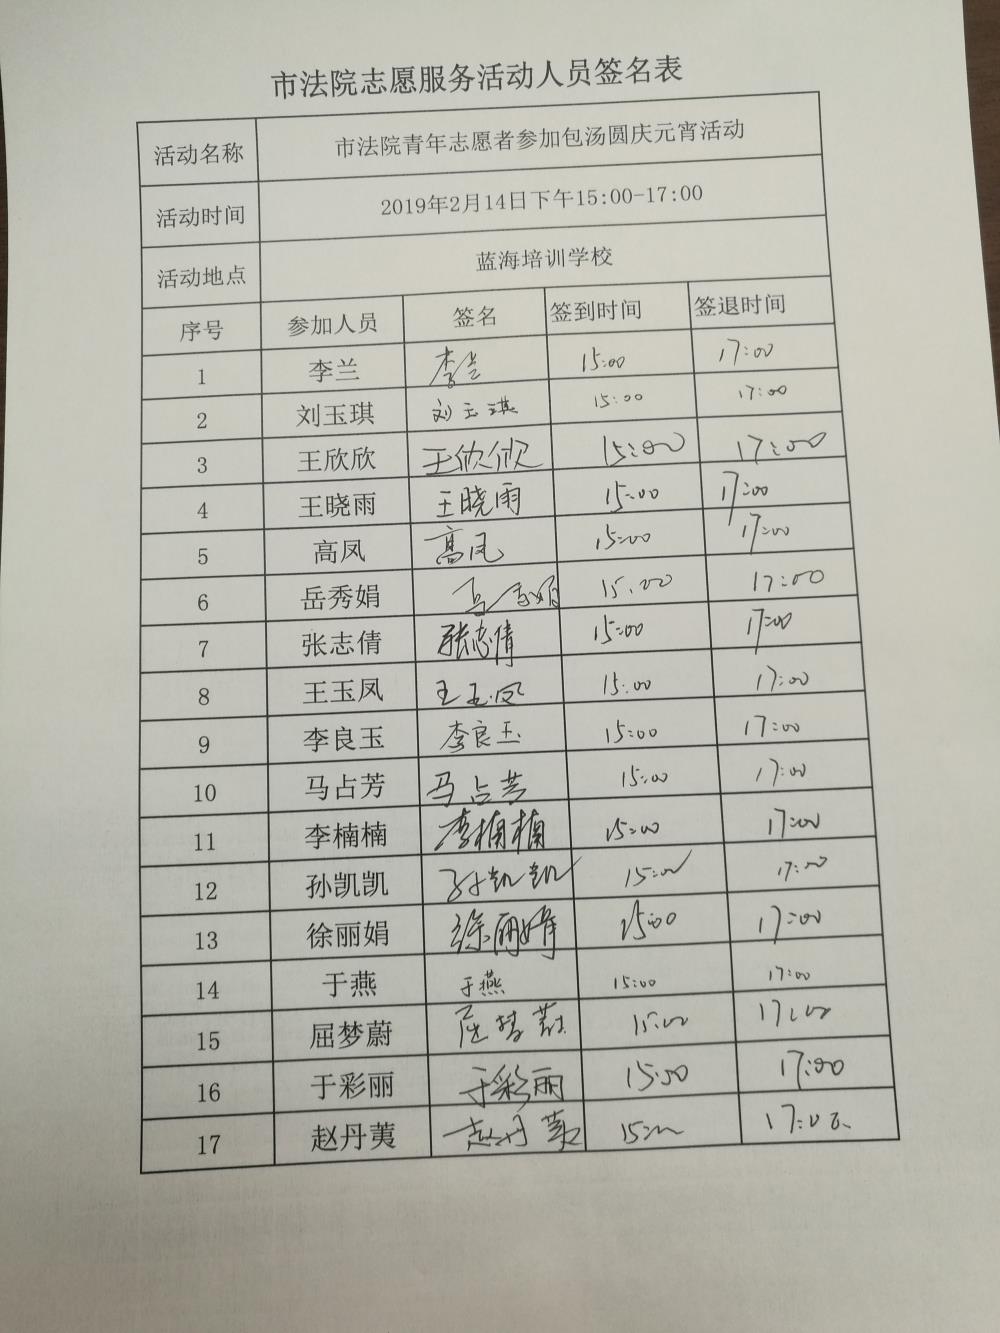 市法院志愿服务活动人员签名表
活动名称 市法院青年志愿者参加包汤圆庆元宵活动
活动时间 2019年2月14日下午15:00-17:00
活动地点 蓝海培训学校
序号 参加人员 签名 签到时间 签退时间
1 李兰 李兰 15:00 17:00
2 刘玉琪 刘玉琪 15:00 17:00
3 王欣欣 王欣欣 15:00 17:00
4 王晓雨 王晓雨 15:00 17:00
5 高凤 高凤 15:00 17:00
6 岳秀娟 岳秀娟 15:00 17:00
7 张志倩 张志倩 15:00 17:00
8 王玉凤 王玉凤 15:00 17:00
9 李良玉 李良玉 15:00 17:00
10 马占芳 马占芳 15:00 17:00
11 李楠楠 李楠楠 15:00 17:00
12 孙凯凯 孙凯凯 15:00 17:00
13 徐丽娟 徐丽娟 15:00 17:00
14 于燕 于燕 15:00 17:00
15 屈梦蔚 屈梦蔚 15:00 17:00
16 于彩丽 于彩丽 15:00 17:00
17 赵丹荑 赵丹荑 15:00 17:00